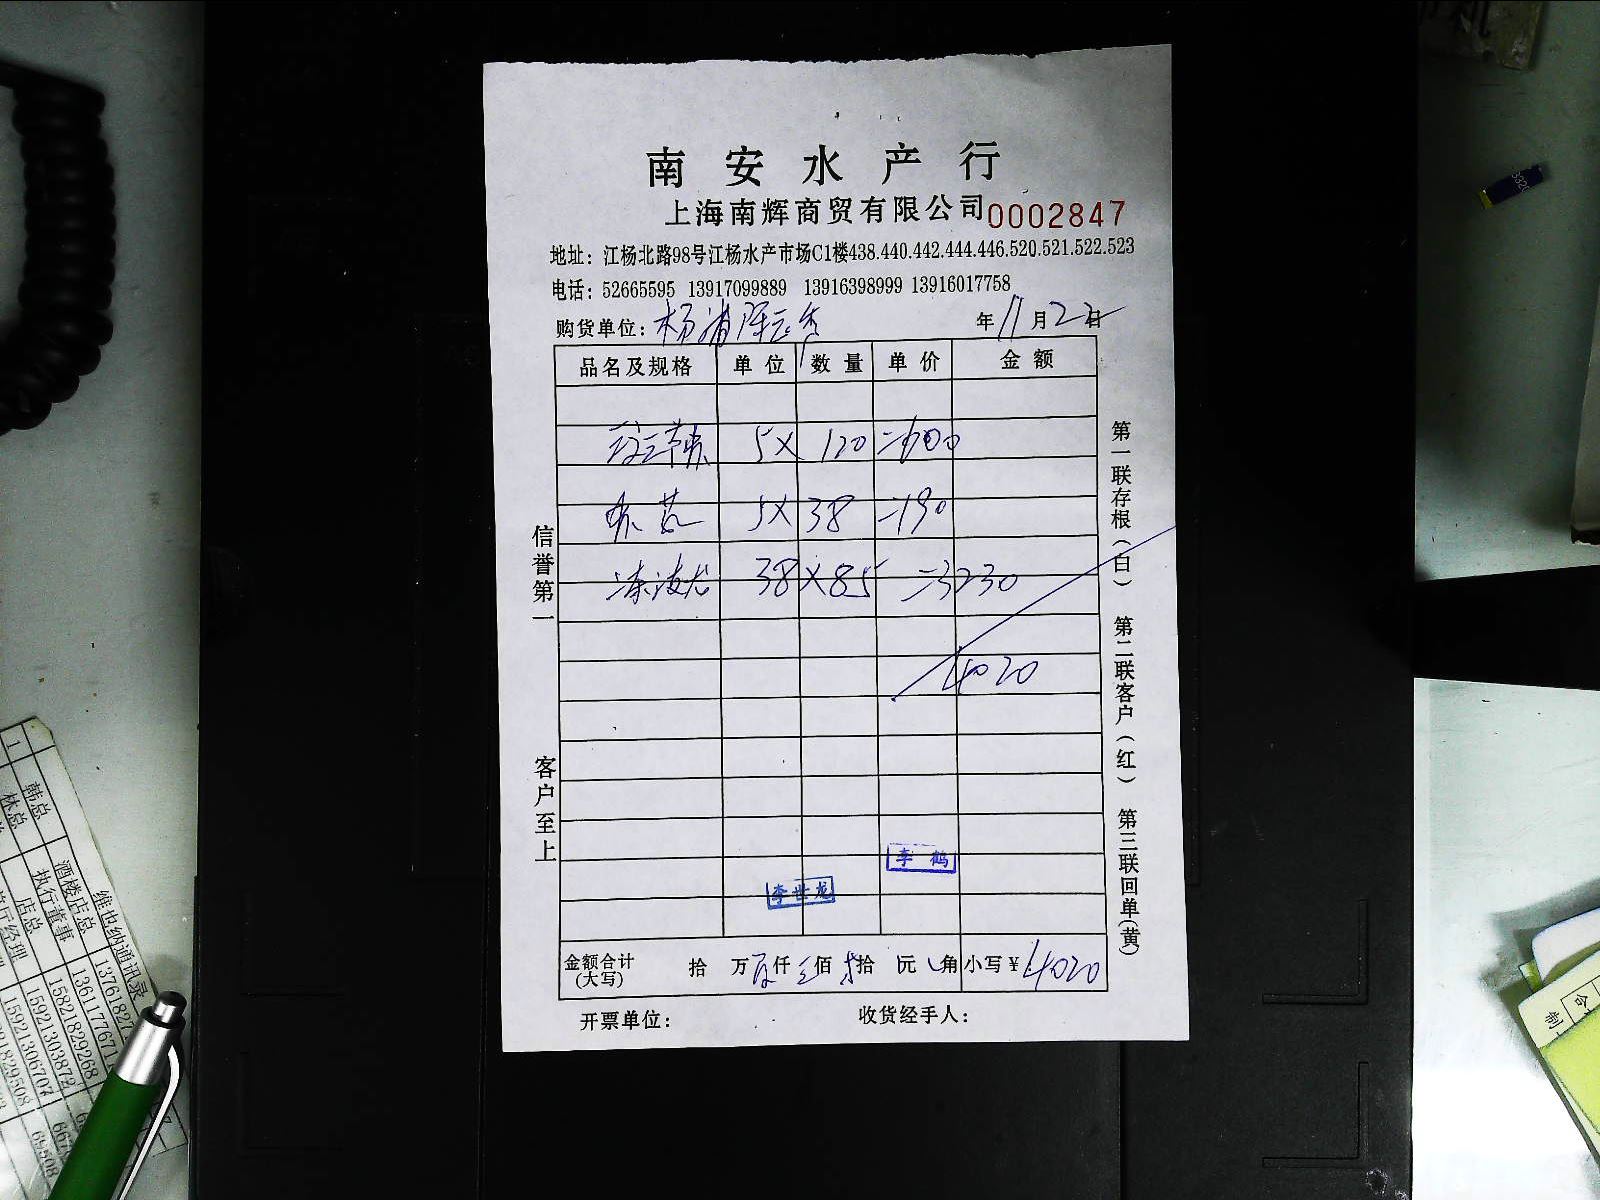 南安水产行
上海南辉商贸有限公司 0002847
地址：江杨北路98号江杨水产市场C1楼438.440.442.444.446.520.521.522.523
电话：52665595 13917099889 13916398999 13916017758
购货单位：杨浦 年 11 月 22 日
品名及规格 单位 数量 单价 金额
5 X 120 =600
5 X 38 =190
38 X 85 =3230
4020
李鹤
李世龙
金额合计(大写) 拾 万 仟 佰 拾 元 角 小写￥4020
开票单位： 收货经手人：
信誉第一
客户至上
第一联存根(白) 第二联客户(红) 第三联回单(黄)
韩总
林总
酒楼店总
执行董事
店总
维也纳通讯录